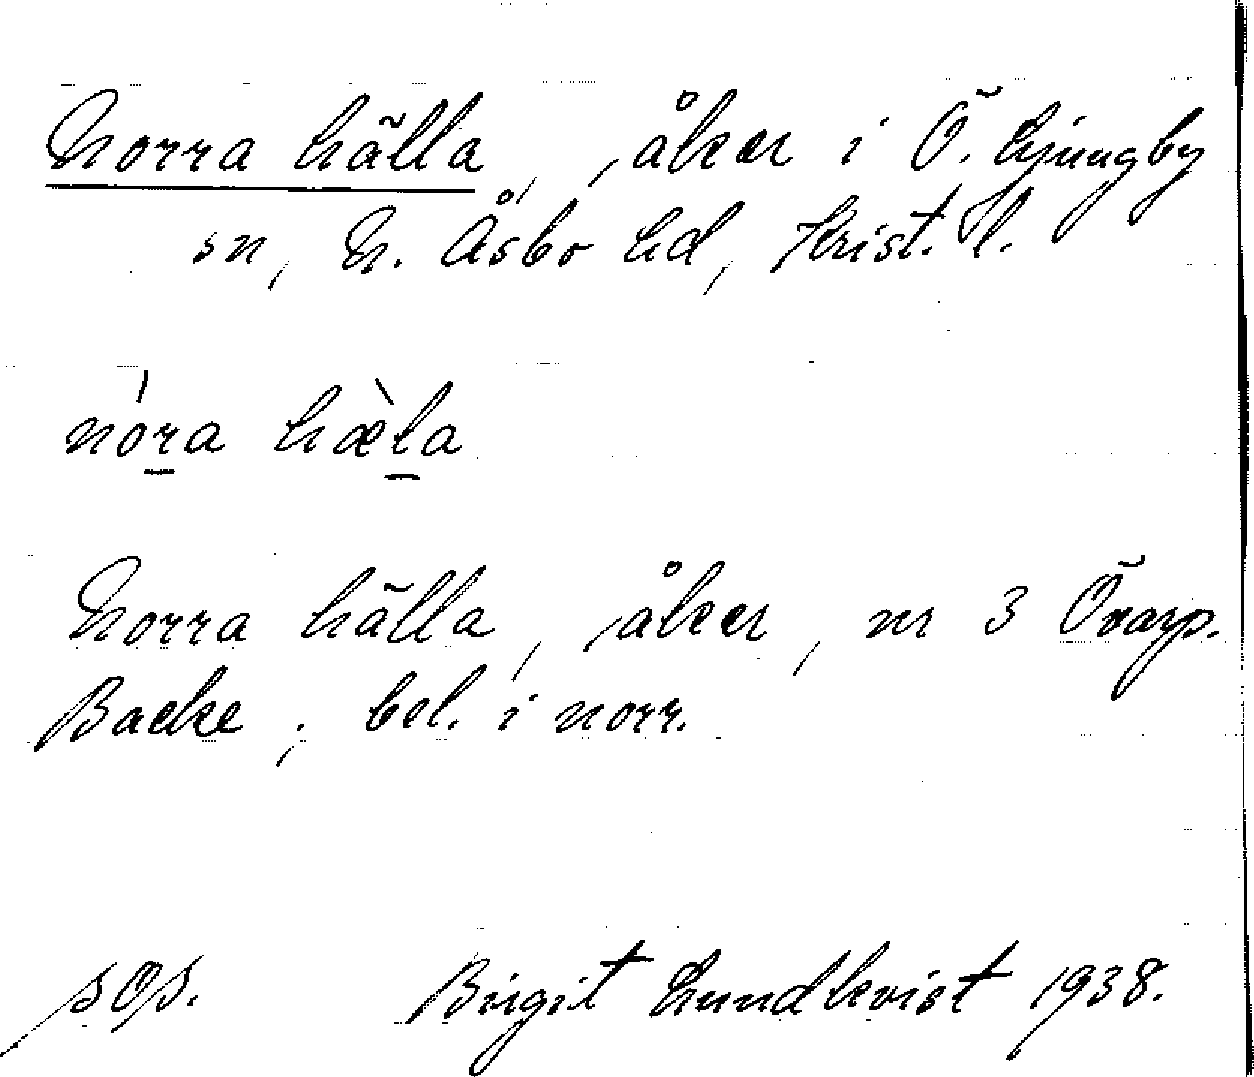 Norra hälla, åker i Ö. Ljungby
sn, N. Åsbo hd, Krist. l.
nóra hæ̀la
Norra hälla, åker, nr 3 Övarp.
Backe; bel. i norr.
sOs. Birgit Lundkvist 1938.